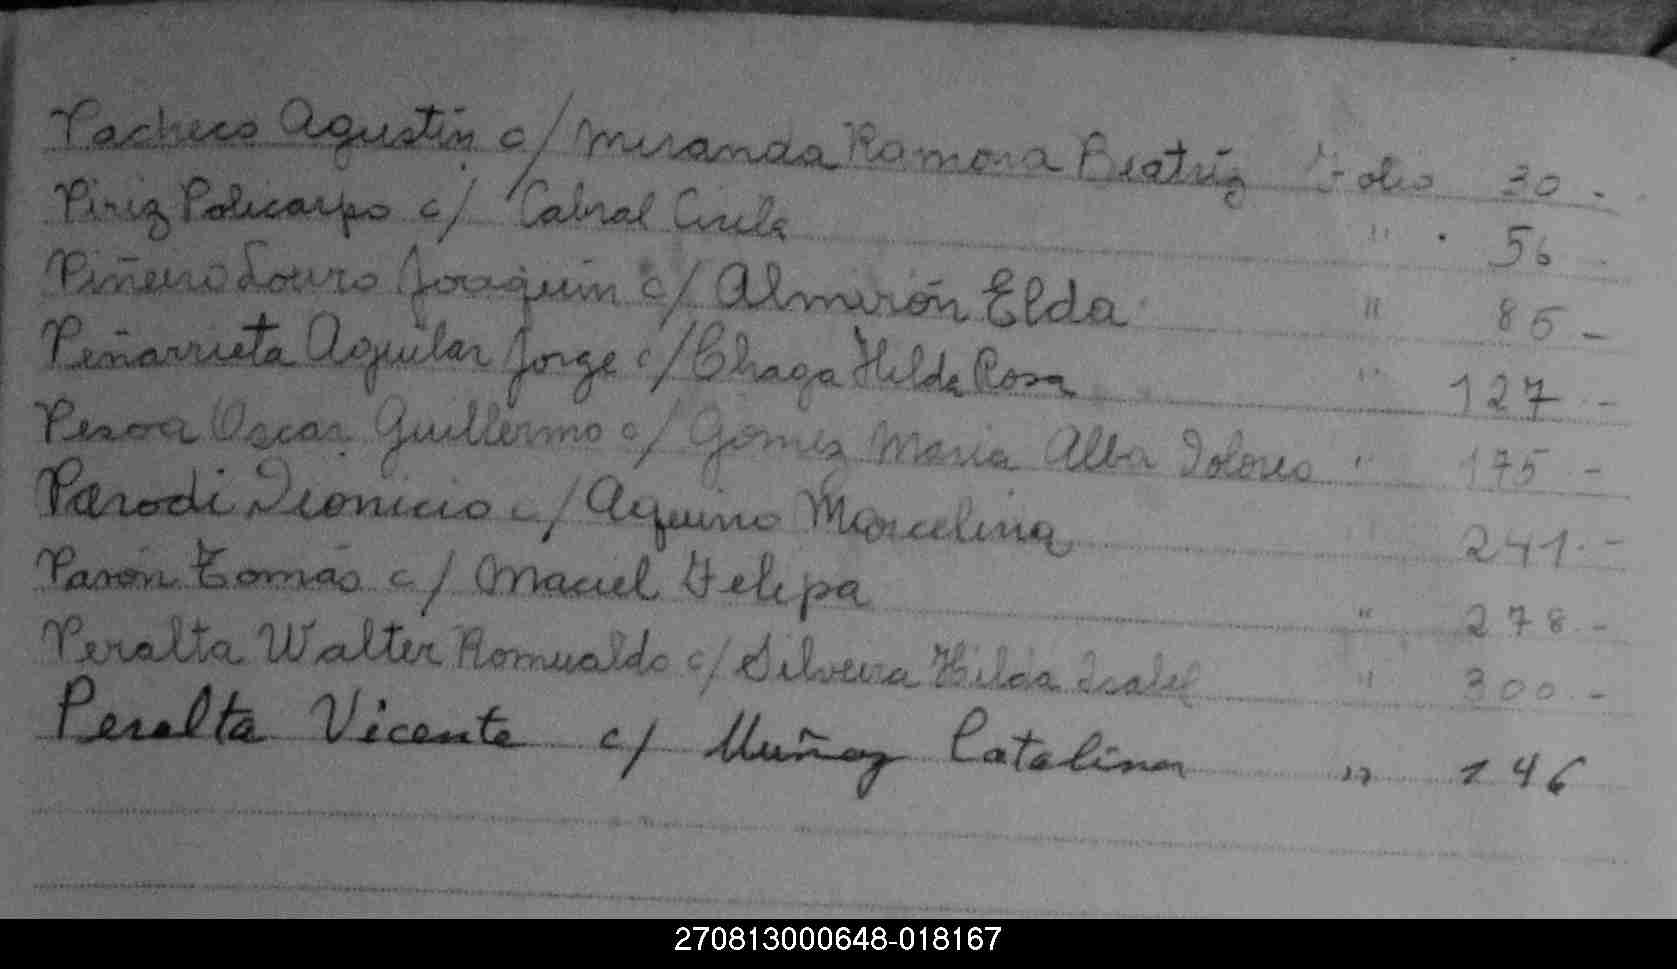 Pacheco Agustín c/ Miranda Ramona Beatríz Folio 30.-
Piriz Policarpo c/ Cabral Cirila " 56 -
Piñeiro Louro Joaquín c/ Almirón Elda " 85 -
Peñarrieta Aguilar Jorge c/ Chaga Hilda Rosa " 127.-
Pesoa Oscar Guillermo c/ Gómez Maria Alba Dolores " 175.-
Parodi Dionicio c/ Aquino Marcelina 241.-
Pavón Tomás c/ Maciel Felipa " 278.-
Peralta Walter Romualdo c/ Silveira Hilda Isabel " 300.-
Peralta Vicente c/ Muñoz Catalina " 146
270813000648-018167